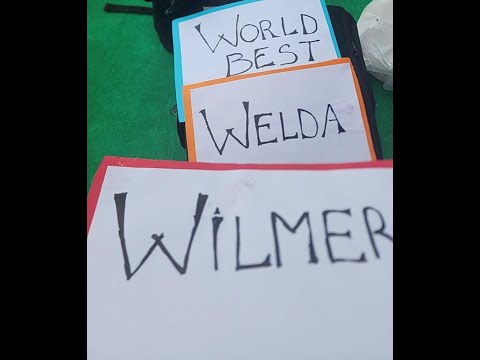 WORLD
BEST
WELDA
WILMER